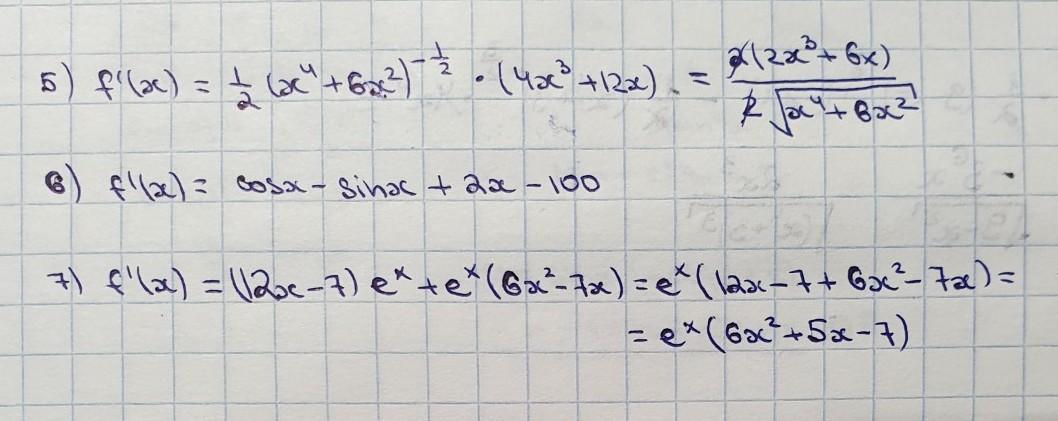 5) f'(x) = 1/2 (x⁴ + 6x²)^(-1/2) · (4x³ + 12x) = 2(2x³ + 6x) / 2√(x⁴ + 6x²)
6) f'(x) = cosx - sinx + 2x - 100
7) f'(x) = (12x - 7) eˣ + eˣ (6x² - 7x) = eˣ (12x - 7 + 6x² - 7x) =
= eˣ (6x² + 5x - 7)